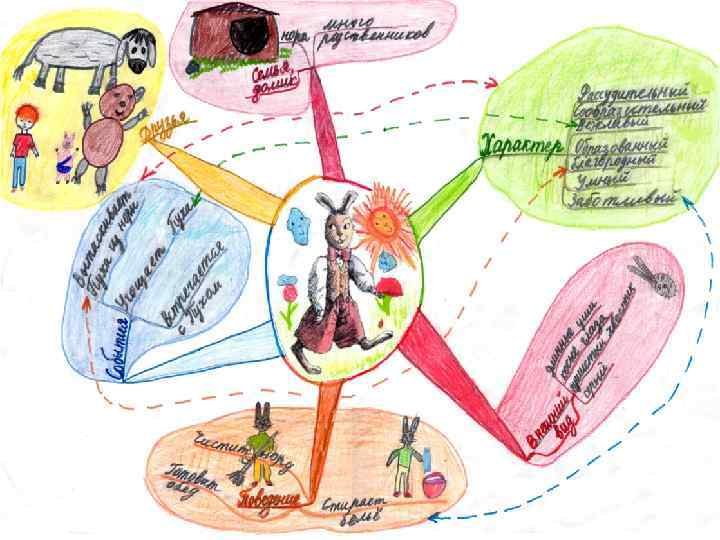 нора
много
родственников
Семья,
домик
Друзья
Характер
Рассудительный
Сообразительный
Вежливый
Образованный
Благородный
Умный
Заботливый
Вытаскивает
Пуха из норы
Угощает Пуха
Встречается
с Пухом
События
длинные уши
косые глаза
пушистый хвостик
серый
Внешний
вид
Чистит нору
Готовит
обед
Поведение
Стирает
бельё